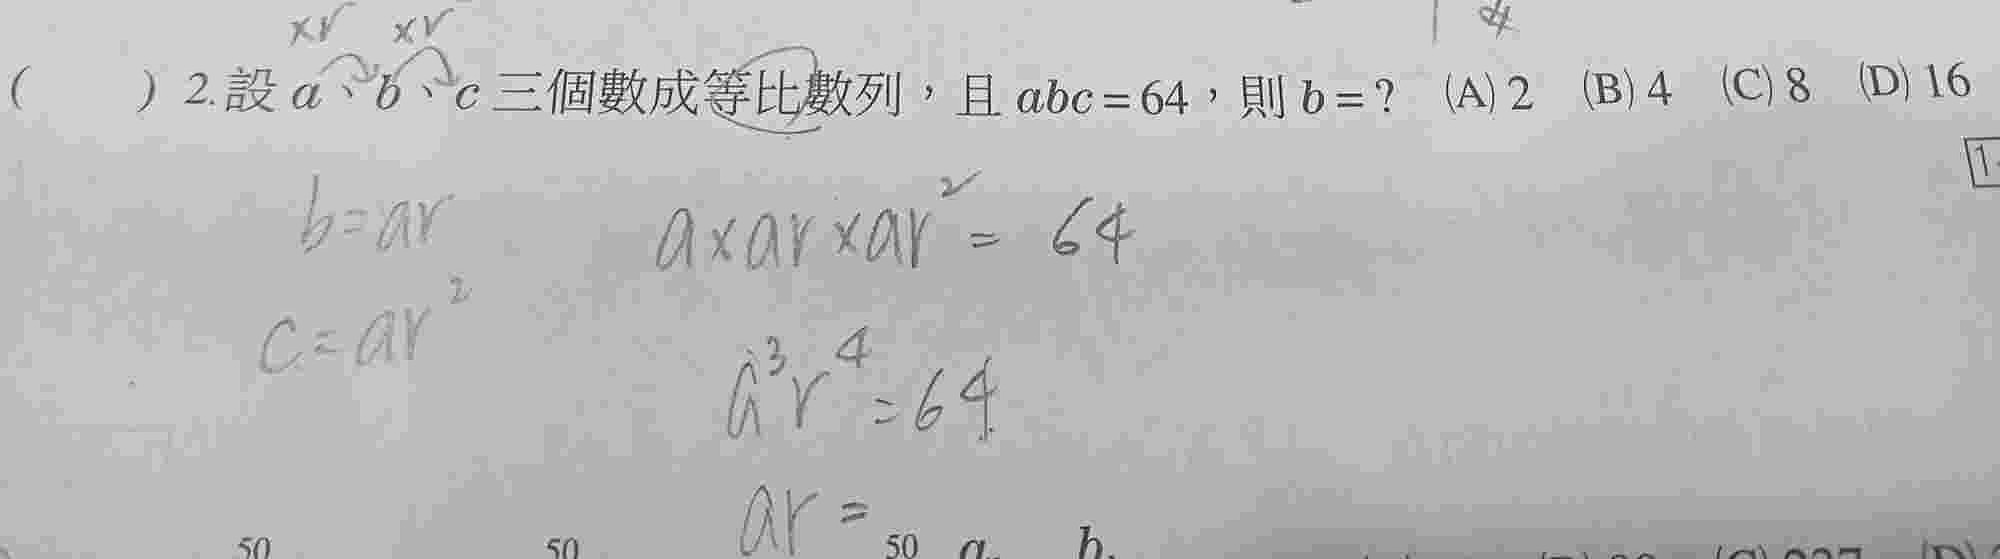 ×r ×r
4
( ) 2.設 a、b、c 三個數成等比數列，且 abc = 64，則 b = ? (A) 2 (B) 4 (C) 8 (D) 16
1
b=ar a×ar×ar² = 64
c=ar²
a³r⁴=64
ar =
50 50 50 a b